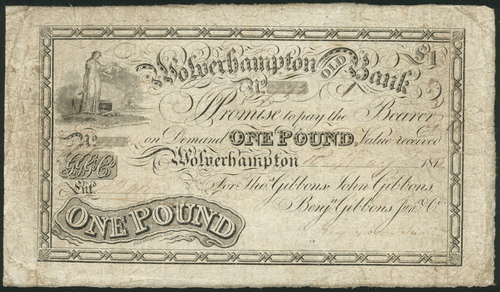 Wolverhampton OLD Bank £1
No
Promise to pay the Bearer
No on Demand ONE POUND Value received
Wolverhampton 181
Entd. For Thos. Gibbons, John Gibbons,
Benjn. Gibbons Junr. & Co.
ONE POUND